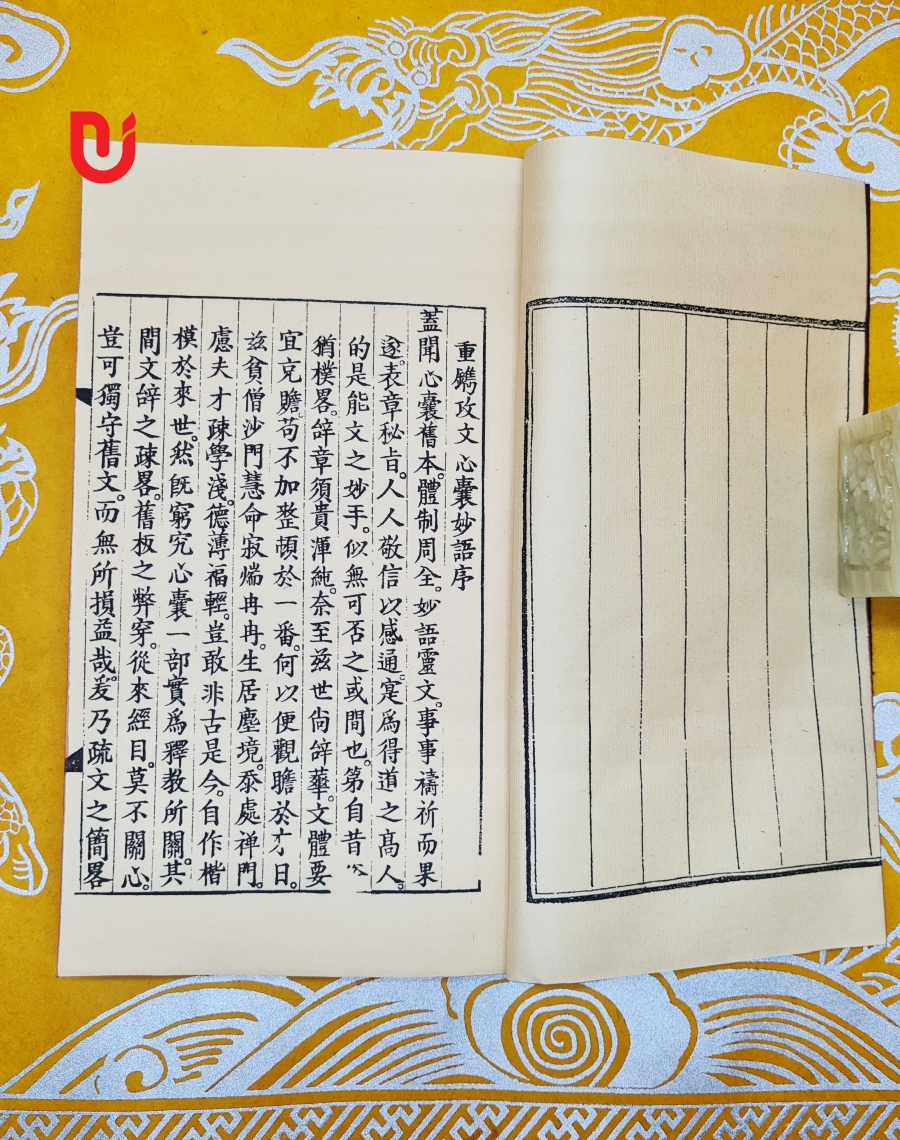 重鐫攻文心囊妙語序
蓋聞心囊舊本。體制周全。妙語靈文。事事禱祈而果
遂。表章秘旨。人人敬信以感通。寔為得道之高人。
的是能文之妙手。似無可否之或間也。第自昔
猶樸畧。辞章須貴渾純。奈至兹世尙辞華。文體要
宜克贍。苟不加整頓於一番。何以便觀瞻於才日。
兹貧僧沙門慧命寂耑冉冉。生居塵境。忝處禅門。
慮夫才疎學淺。德薄福輕。豈敢非古是今。自作楷
模於來世。然旣窮究心囊一部實爲釋教所關。其
間文辞之疎畧。舊板之弊穿。從來經目。莫不關心。
豈可獨守舊文。而無所損益哉。爰乃疏文之簡畧